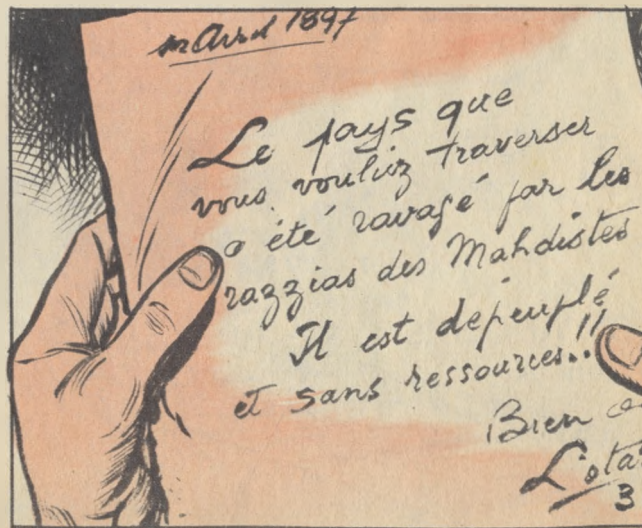 Avril 1897
Le pays que
vous vouliez traverser
a été ravagé par les
razzias des Mahdistes
Il est dépeuplé
et sans ressources..!!
Bien
Lota
3